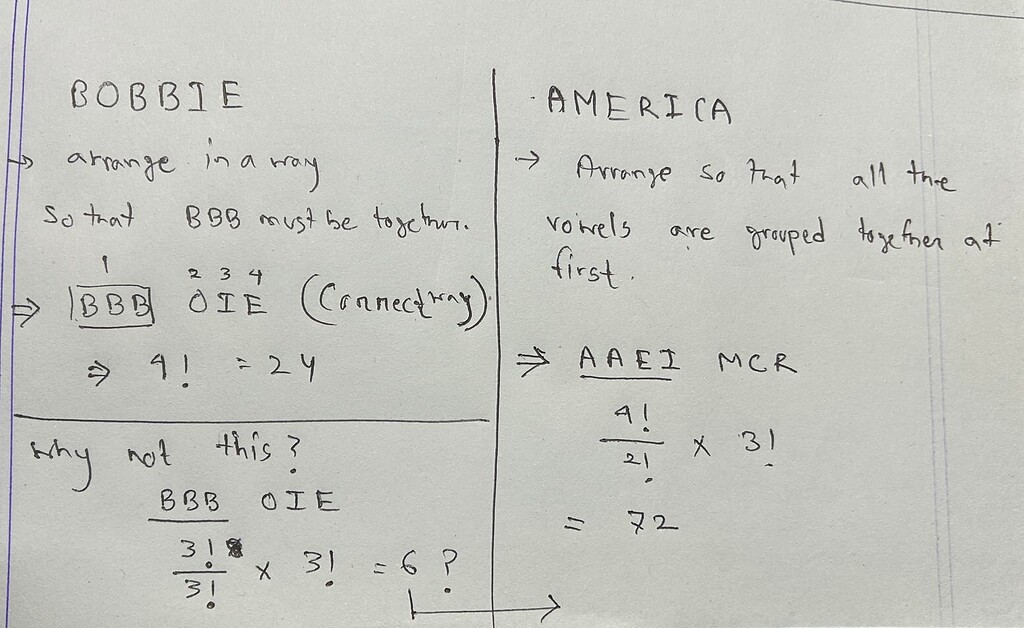 BOBBIE
→ arrange in a way
So that BBB must be together.
1 2 3 4
⇒ BBB OIE (Correct way)
⇒ 4! = 24
Why not this?
BBB OIE
3!/3! × 3! = 6 ?
AMERICA
→ Arrange so that all the
vowels are grouped together at
first.
⇒ AAEI MCR
4!/2! × 3!
= 72